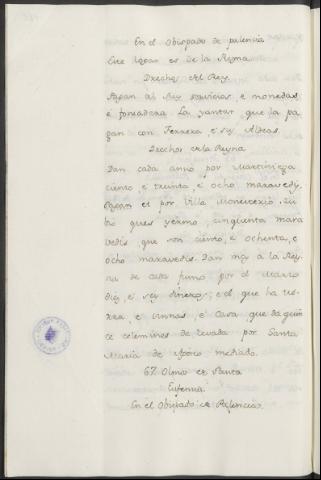 En el Obispado de palencia
Este logar es de la Reyna
Drechos del Rey
Pagan al Rey servicios, e monedas,
e fonsadera. La yantar que la pa
gan con Ferrera, e sus Aldeas.
Drechos de la Reyna
Dan cada anno por Martiniega
ciento, e treinta, e ocho maravedis,
pagan et por Villa
bro ques yermo, cinquenta mara
vedis que son ciento, e ochenta, e
ocho maravedis. Dan mas a la Rey
na de cada fumo por el Marzo
diez, e seis dineros, e el que ha tie
rra, e vinnas, e Casa que da quin
ce celemines de cevada por Santa
Maria de agosto mediado.
67. Olmo de Santa
Eufemia
En el Obispado de Palencia